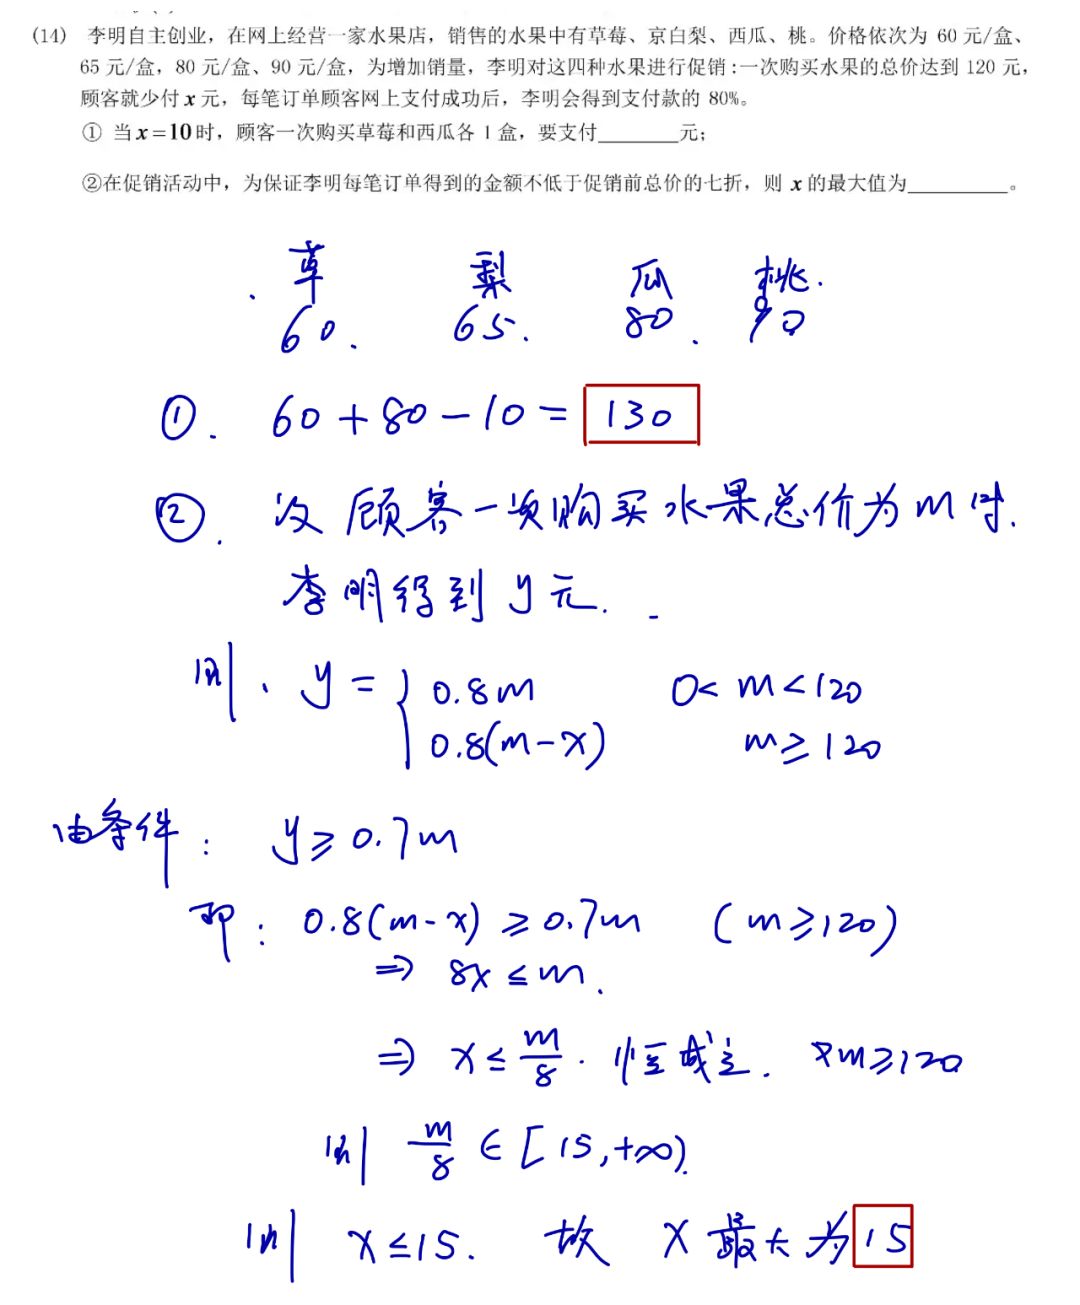 (14) 李明自主创业，在网上经营一家水果店，销售的水果中有草莓、京白梨、西瓜、桃。价格依次为 60 元/盒、
65 元/盒，80 元/盒、90 元/盒，为增加销量，李明对这四种水果进行促销：一次购买水果的总价达到 120 元，
顾客就少付 x 元，每笔订单顾客网上支付成功后，李明会得到支付款的 80%。
① 当 x=10 时，顾客一次购买草莓和西瓜各 1 盒，要支付________元；
②在促销活动中，为保证李明每笔订单得到的金额不低于促销前总价的七折，则 x 的最大值为__________。
草 梨 瓜 桃.
60. 65. 80. 90
①. 60+80-10= 130
②. 设顾客一次购买水果总价为 m 时.
李明得到 y 元.
则. y= { 0.8m 0<m<120
0.8(m-x) m≥120
由条件: y≥0.7m
即: 0.8(m-x)≥0.7m (m≥120)
⇒ 8x≤m.
⇒ x≤m/8. 恒成立. 又m≥120
则 m/8 ∈[15,+∞).
则 x≤15. 故 x 最大为 15